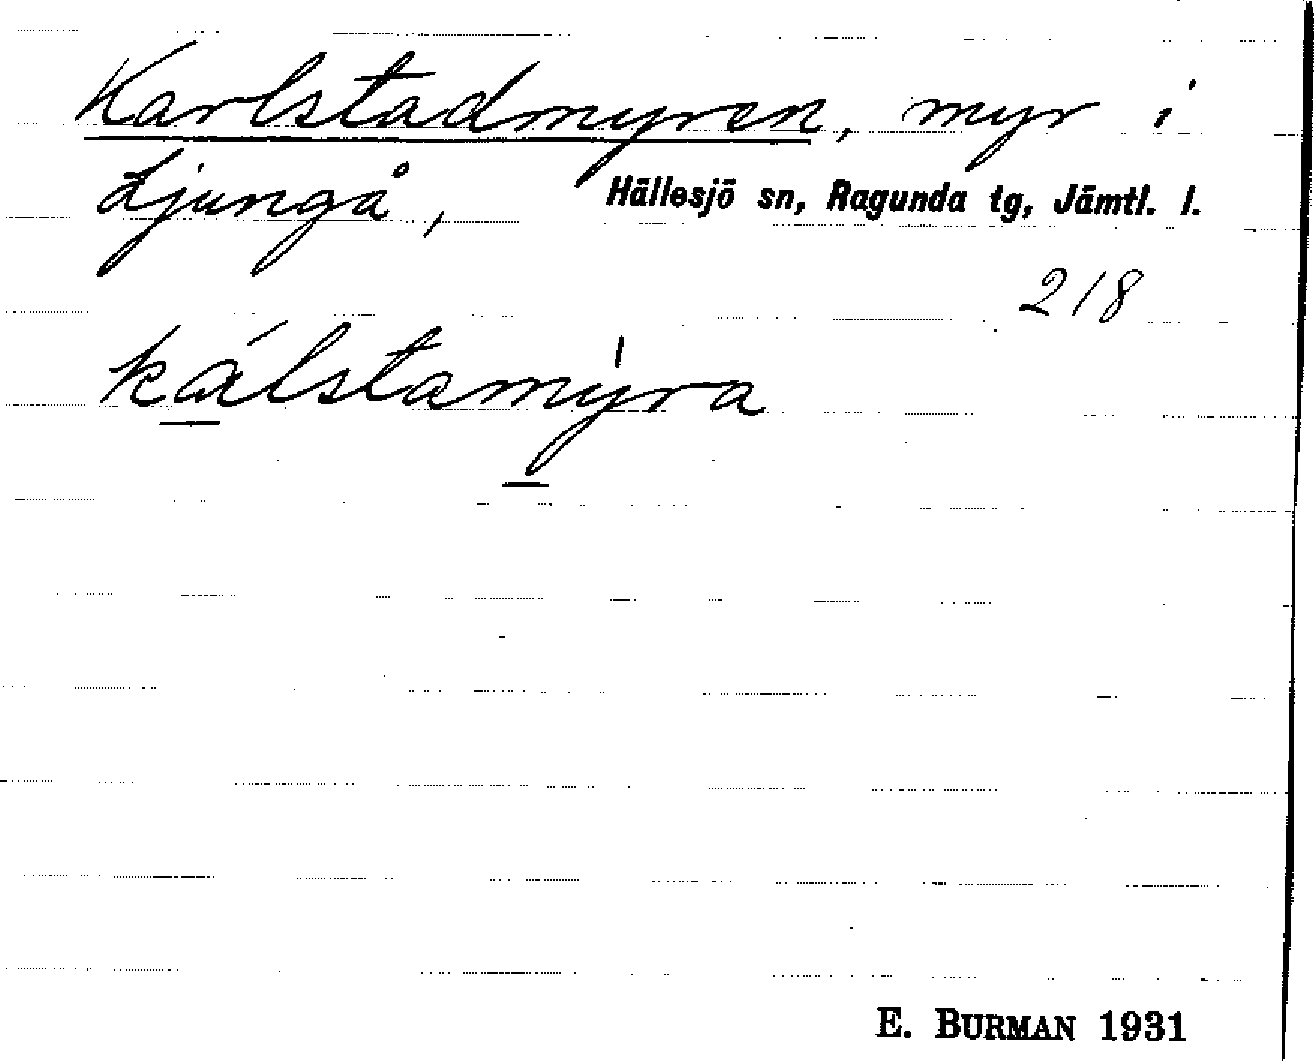 Karlstadmyren, myr i
Ljungå, Hällesjö sn, Ragunda tg, Jämtl. l.
218
kálstamyra
E. BURMAN 1931